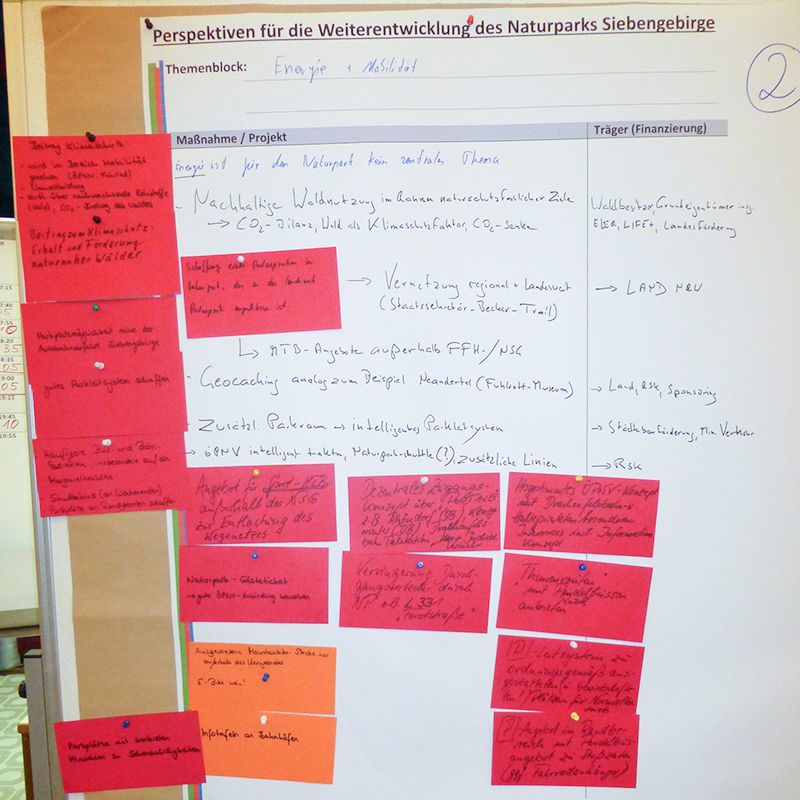 Perspektiven für die Weiterentwicklung des Naturparks Siebengebirge
Themenblock: Energie + Mobilität
2
Maßnahme / Projekt
Träger (Finanzierung)
Energie ist für den Naturpark kein zentrales Thema
- Nachhaltige Waldnutzung im Rahmen naturschutzfachlicher Ziele
→ CO₂-Bilanz, Wald als Klimaschutzfaktor, CO₂-Senke
Waldbesitzer, Grundeigentümer
ELER, LIFE+, Landesförderung
→ Vernetzung regional + landesweit
(Staatssekretär-Becker-Trail)
→ LAND NRW
↳ MTB-Angebote außerhalb FFH-/NSG
- Geocaching analog zum Beispiel Neandertal (Fuhlrott-Museum)
→ Land, RSK, Sponsoring
- Zusätzl. Parkraum → intelligentes Parkleitsystem
→ Städtebauförderung, Min. Verkehr
→ ÖPNV intelligent takten, Naturpark-shuttle(?), zusätzliche Linien
→ RSK
Beitrag Klimaschutz:
- wird im Bereich Mobilität
gesehen (ÖPNV, Fahrrad)
- Umweltbildung
(Holz), CO₂-Bindung des Waldes
Beitrag zum Klimaschutz:
Erhalt und Förderung
naturnaher Wälder
Parkplatzmöglichkeit nahe der
Autobahnabfahrt Siebengebirge
gutes Parkleitsystem schaffen
Häufigere Bus und Bahn
insbesondere auf die
Margarethenhöhe
- Shuttlebus (an Wochenenden)
Parkplätze an Randgebieten schaffen
Angebot für Sport-MTB
außerhalb des NSG
zur Entlastung des
Wegenetzes
Dezentrales Zugangs-
konzept über
z.B. Rhöndorf (DB) Königs-
winter (DB)
Abgestimmtes ÖPNV-Konzept
mit Drachenfelsbahn
incl. Informations
Konzept
Naturpark-Gästeticket
→ gute ÖPNV-Anbindung bewerben
Verringerung Durch-
gangsverkehr durch
NP z.B. L 331
"Ferststraße"
"Themenrouten"
mit Pendelbussen
anbieten
Ausgewiesene Mountainbike-Strecke nur
außerhalb des Kerngebietes
E-Bike nein!
Infotafeln an Bahnhöfen
Parkplätze mit konkreten
Hinweisen zu Sehenswürdigkeiten
[P]-Leitsysteme zu
ordnungsgemäß aus-
gestatteten
[P] Angebot im Rand-
bereich mit Pendelbus-
angebot zu Stoßzeiten
(ggf Fahrradanhänger)